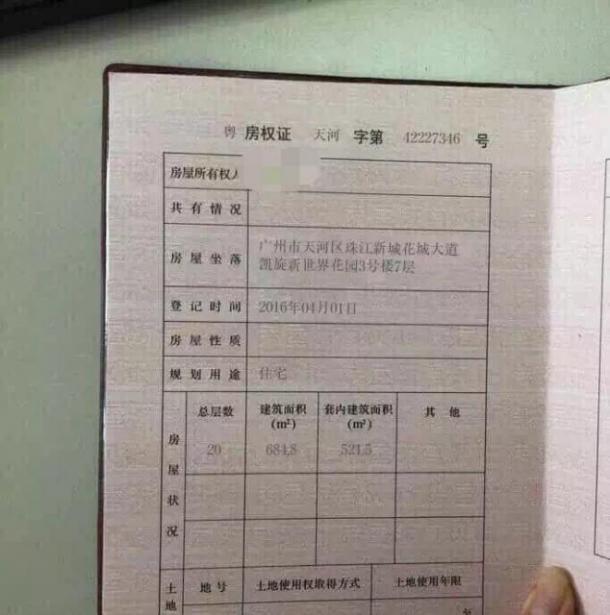 粤 房权证 天河 字第 42227346 号
房屋所有权人
共有情况
房屋坐落 广州市天河区珠江新城花城大道
凯旋新世界花园3号楼7层
登记时间 2016年04月01日
房屋性质
规划用途 住宅
房屋状况 总层数 建筑面积(m²) 套内建筑面积(m²) 其他
20 684.8 521.5
土地 地号 土地使用权取得方式 土地使用年限
至